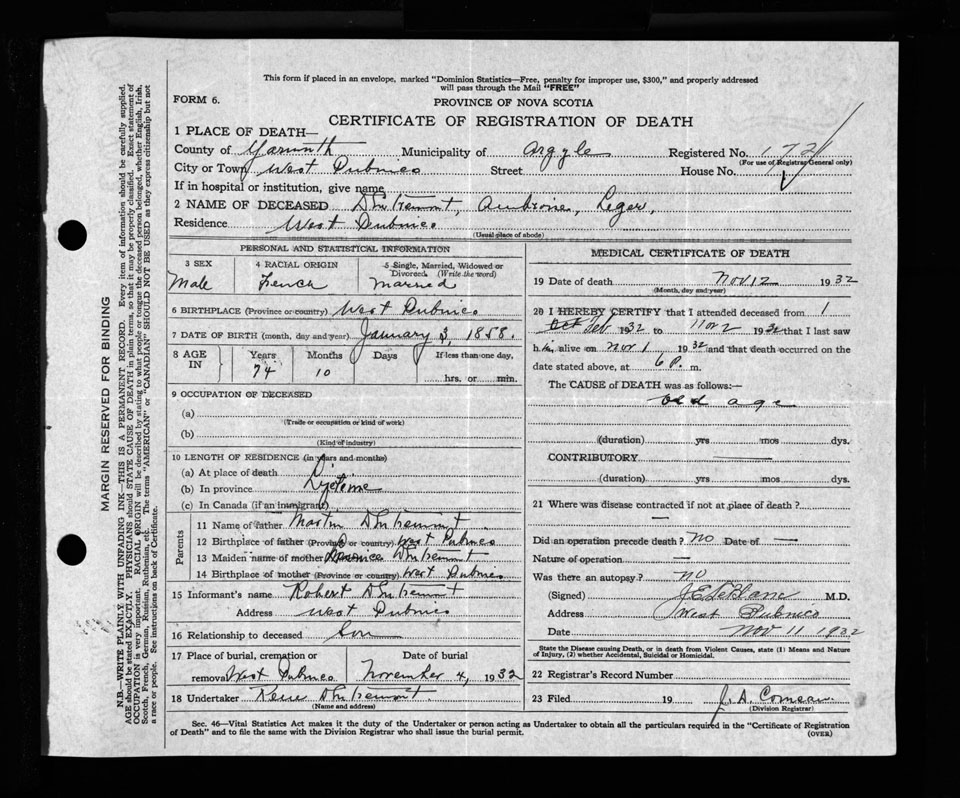 This form if placed in an envelope, marked "Dominion Statistics—Free, penalty for improper use, $300," and properly addressed
will pass through the Mail "FREE"
FORM 6.
PROVINCE OF NOVA SCOTIA
CERTIFICATE OF REGISTRATION OF DEATH
1 PLACE OF DEATH—
County of Yarmouth Municipality of Argyle Registered No.
(For use of Registrar General only)
City or Town West Pubnico Street House No.
If in hospital or institution, give name
2 NAME OF DECEASED D'Entremont, Ambroise, Leger,
Residence West Pubnico
(Usual place of abode)
PERSONAL AND STATISTICAL INFORMATION
3 SEX 4 RACIAL ORIGIN 5 Single, Married, Widowed or Divorced. (Write the word)
Male French Married
6 BIRTHPLACE (Province or country) West Pubnico
7 DATE OF BIRTH (month, day and year) January 3, 1858.
8 AGE IN Years Months Days If less than one day,
74 10 hrs. or min.
9 OCCUPATION OF DECEASED
(a)
(Trade or occupation or kind of work)
(b)
(Kind of industry)
10 LENGTH OF RESIDENCE (in years and months)
(a) At place of death
(b) In province Lifetime
(c) In Canada (if an immigrant)
Parents
11 Name of father Martin D'Entremont
12 Birthplace of father (Province or country) West Pubnico
13 Maiden name of mother D'Entremont
14 Birthplace of mother (Province or country) West Pubnico
15 Informant's name Robert D'Entremont
Address West Pubnico
16 Relationship to deceased Son
17 Place of burial, cremation or Date of burial
removal West Pubnico November 4, 1932
18 Undertaker Rene D'Entremont
(Name and address)
MEDICAL CERTIFICATE OF DEATH
19 Date of death Nov 1932
(Month, day and year)
20 I HEREBY CERTIFY that I attended deceased from
Oct Feb 1932 to Nov 2 1932 that I last saw
him alive on Nov 1 1932 and that death occurred on the
date stated above, at 6 P. m.
The CAUSE of DEATH was as follows:—
old age
(duration) yrs mos dys.
CONTRIBUTORY
(duration) yrs mos dys.
21 Where was disease contracted if not at place of death?
—
Did an operation precede death? no Date of —
Nature of operation —
Was there an autopsy? no
(Signed) J E LeBlanc M.D.
Address West Pubnico
Date Nov 11 1932
State the Disease causing Death, or in death from Violent Causes, state (1) Means and Nature
of Injury, (2) whether Accidental, Suicidal or Homicidal.
22 Registrar's Record Number
23 Filed 19 J. A. Comeau
(Division Registrar)
Sec. 46—Vital Statistics Act makes it the duty of the Undertaker or person acting as Undertaker to obtain all the particulars required in the "Certificate of Registration
of Death" and to file the same with the Division Registrar who shall issue the burial permit.
(OVER)
MARGIN RESERVED FOR BINDING
N.B.—WRITE PLAINLY WITH UNFADING INK—THIS IS A PERMANENT RECORD. Every item of information should be carefully supplied.
AGE should be stated EXACTLY. PHYSICIANS should STATE CAUSE OF DEATH in plain terms, so that it may be properly classified. Exact statement of
OCCUPATION is very important. RACIAL ORIGIN will be described by stating to what people or tongue the deceased person belonged, whether English, Irish,
Scotch, French, German, Russian, Ruthenian, etc. The terms "AMERICAN" or "CANADIAN" SHOULD NOT BE USED as they express citizenship but not
a race or people. See instructions on back of Certificate.